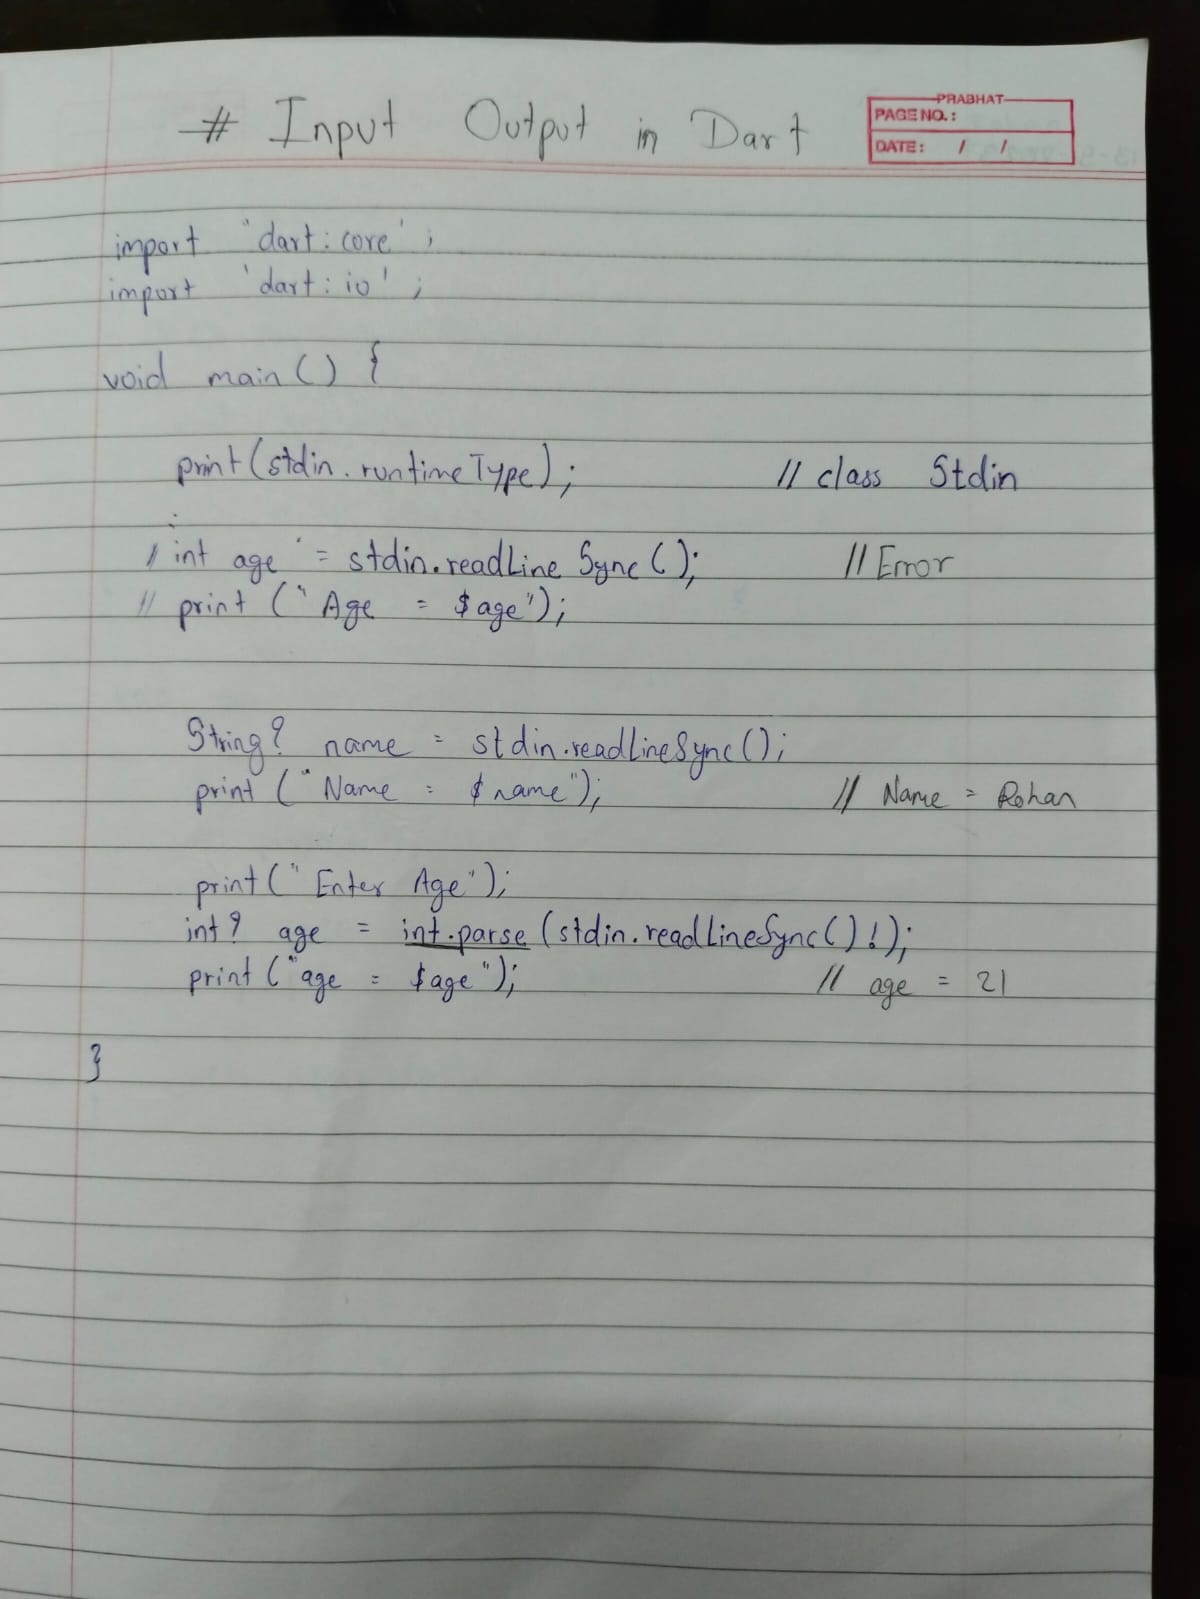 # Input Output in Dart
PRABHAT
PAGE NO.:
DATE: / /
import 'dart:core';
import 'dart:io';
void main() {
print(stdin.runtimeType); // class Stdin
// int age = stdin.readLineSync(); // Error
// print ("Age = $age");
String? name = stdin.readLineSync();
print ("Name = $name"); // Name = Rohan
print("Enter Age");
int? age = int.parse(stdin.readLineSync()!);
print ("age = $age"); // age = 21
}